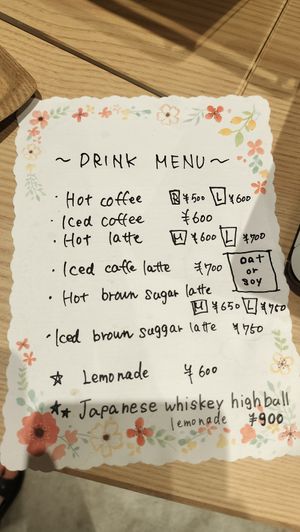 ~ DRINK MENU ~
· Hot coffee R ¥500 L ¥600
· Iced coffee ¥600
· Hot latte M ¥600 L ¥700
· Iced caffe latte ¥700
oat
or
soy
· Hot brown sugar latte
M ¥650 L ¥750
· Iced brown suggar latte ¥750
☆ Lemonade ¥600
★★ Japanese whiskey highball
lemonade ¥900